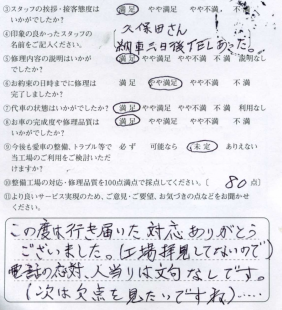 ③スタッフの挨拶・接客態度は 満足 やや満足 やや不満 不満
いかがでしたか？
④印象の良かったスタッフの 久保田さん
名前をご記入ください。 納車三日後TELあった。
⑤修理内容の説明はいかが 満足 やや満足 やや不満 不満 説明なし
でしたか？
⑥お約束の日時までに修理は 満足 やや満足 やや不満 不満
完了しましたか？
⑦代車の状態はいかがでしたか？ 満足 やや満足 やや不満 不満 利用なし
⑧お車の完成度や修理品質は 満足 やや満足 やや不満 不満
いかがでしたか？
⑨今後も愛車の整備、トラブル等で 必ず 可能なら 未定 ありえない
当工場のご利用をご検討いただ
けますか？
⑩整備工場の対応・修理品質を100点満点で採点してください。〔 80 点〕
⑪より良いサービス実現のため、ご意見・ご要望、お気づきの点などをお聞かせ
ください。
この度は行き届いた対応ありがとう
ございました。(工場拝見してないので)
電話の応対、人当りは文句なしです。
(次は欠点を見たいですね)‥‥